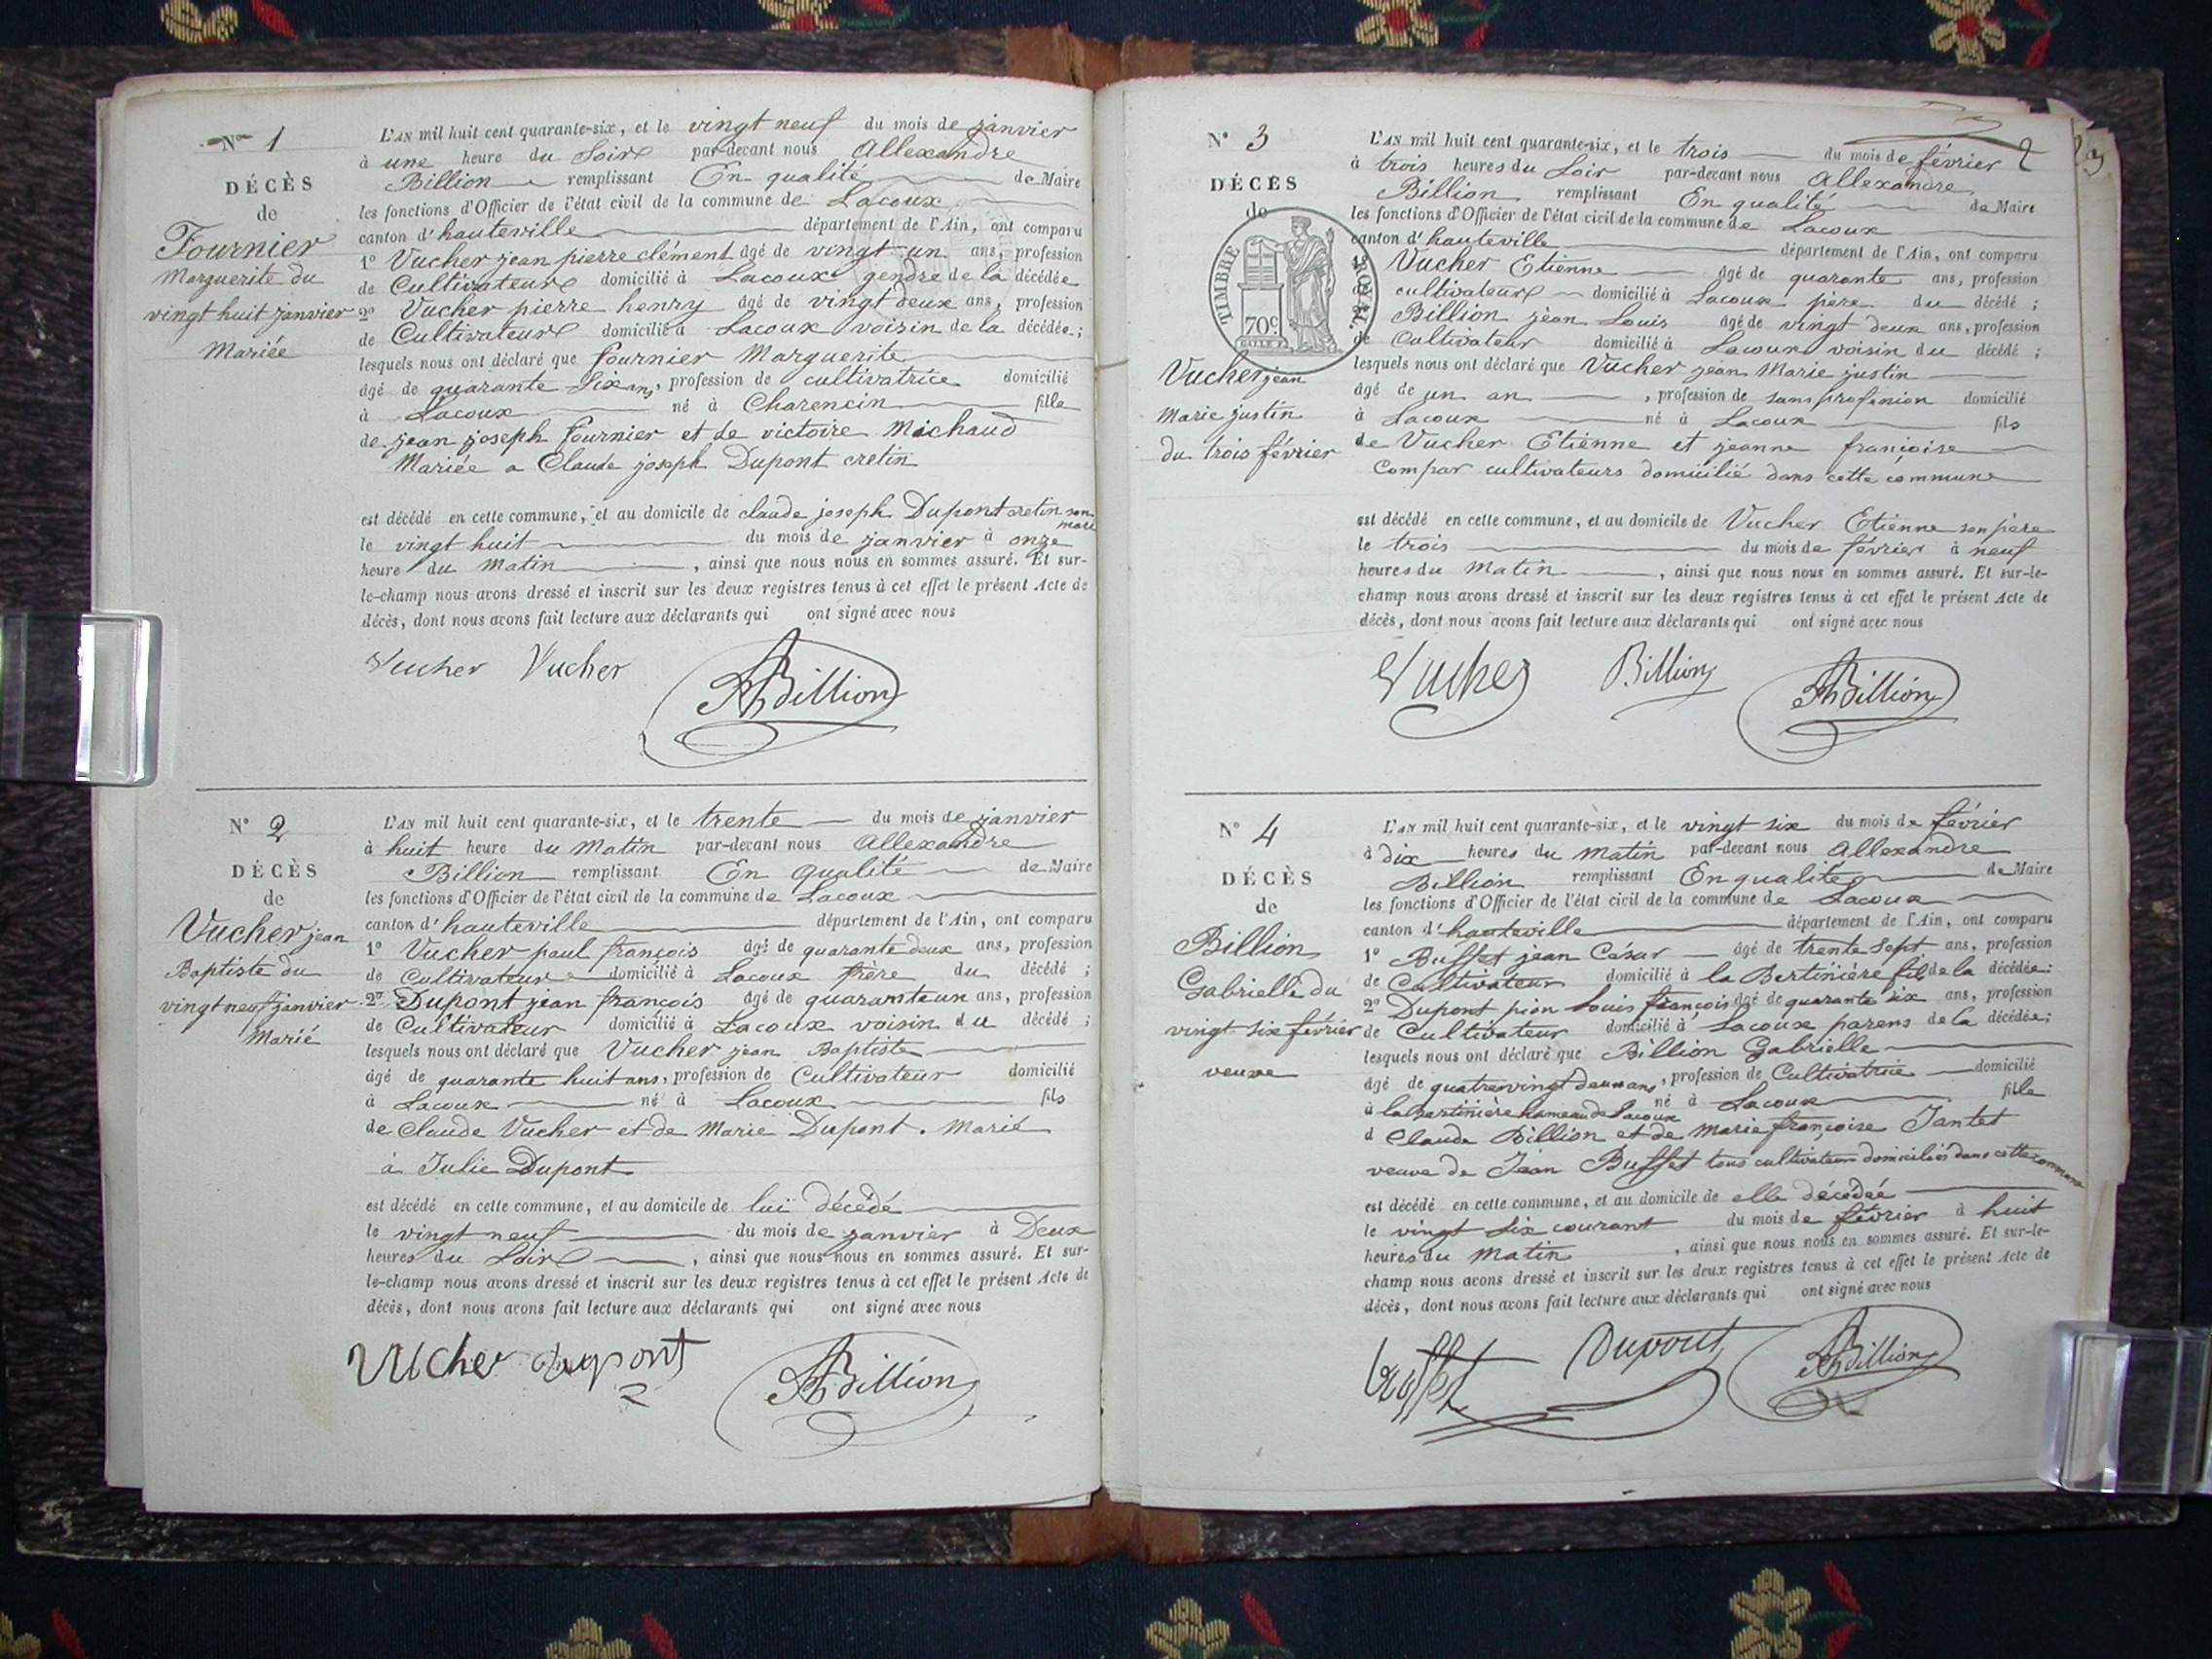 Nº 1
DÉCÈS
de
Fournier
Marguerite du
vingt huit janvier
Mariée
L'AN mil huit cent quarante-six, et le vingt neuf du mois de janvier
à une heure du Soir par-devant nous Allexandre
Billion remplissant En qualité de Maire
les fonctions d'Officier de l'état civil de la commune de Lacoux
canton d'hauteville département de l'Ain, ont comparu
1º Vucher jean pierre clément âgé de vingt un ans, profession
de Cultivateur domicilié à Lacoux gendre de la décédée
2º Vucher pierre henry âgé de vingt deux ans, profession
de Cultivateur domicilié à Lacoux voisin de la décédée;
lesquels nous ont déclaré que fournier Marguerite
âgé de quarante six ans, profession de cultivatrice domicilié
à Lacoux né à Charencin fille
de jean joseph fournier et de victoire Michaud
Mariée a Claude joseph Dupont cretin
est décédé en cette commune, et au domicile de claude joseph Dupont cretin son mari
le vingt huit du mois de janvier à onze
heure du matin, ainsi que nous nous en sommes assuré. Et sur-
le-champ nous avons dressé et inscrit sur les deux registres tenus à cet effet le présent Acte de
décès, dont nous avons fait lecture aux déclarants qui ont signé avec nous
Vucher Vucher ABillion
Nº 2
DÉCÈS
de
Vucher jean
Baptiste du
vingt neuf janvier
Marié
L'AN mil huit cent quarante-six, et le trente du mois de janvier
à huit heure du Matin par-devant nous Allexandre
Billion remplissant En qualité de Maire
les fonctions d'Officier de l'état civil de la commune de Lacoux
canton d'hauteville département de l'Ain, ont comparu
1º Vucher paul françois âgé de quarante deux ans, profession
de Cultivateur domicilié à Lacoux frère du décédé;
2º Dupont jean françois âgé de quarante un ans, profession
de Cultivateur domicilié à Lacoux voisin du décédé;
lesquels nous ont déclaré que Vucher jean Baptiste
âgé de quarante huit ans, profession de Cultivateur domicilié
à Lacoux né à Lacoux fils
de Claude Vucher et de Marie Dupont. Marié
à Julie Dupont
est décédé en cette commune, et au domicile de lui décédé
le vingt neuf du mois de janvier à Deux
heures du Soir, ainsi que nous nous en sommes assuré. Et sur-
le-champ nous avons dressé et inscrit sur les deux registres tenus à cet effet le présent Acte de
décès, dont nous avons fait lecture aux déclarants qui ont signé avec nous
Vucher dupont ABillion
2
3
Nº 3
DÉCÈS
de
TIMBRE ROYAL.
70c
Vucher jean
Marie justin
du trois février
L'AN mil huit cent quarante-six, et le trois du mois de février
à trois heures du Soir par-devant nous Allexandre
Billion remplissant En qualité de Maire
les fonctions d'Officier de l'état civil de la commune de Lacoux
canton d'hauteville département de l'Ain, ont comparu
Vucher Etienne âgé de quarante ans, profession
cultivateur domicilié à Lacoux père du décédé;
Billion jean Louis âgé de vingt deux ans, profession
de Cultivateur domicilié à Lacoux voisin du décédé;
lesquels nous ont déclaré que Vucher jean Marie justin
âgé de un an, profession de sans profession domicilié
à Lacoux né à Lacoux fils
de Vucher Etienne et jeanne françoise
Compar cultivateurs domicilié dans cette commune
est décédé en cette commune, et au domicile de Vucher Etienne son père
le trois du mois de février à neuf
heures du Matin, ainsi que nous nous en sommes assuré. Et sur-le-
champ nous avons dressé et inscrit sur les deux registres tenus à cet effet le présent Acte de
décès, dont nous avons fait lecture aux déclarants qui ont signé avec nous
Vucher Billion ABillion
Nº 4
DÉCÈS
de
Billion
Gabrielle du
vingt six février
veuve
L'AN mil huit cent quarante-six, et le vingt six du mois de février
à dix heures du matin par-devant nous Allexandre
Billion remplissant En qualité de Maire
les fonctions d'Officier de l'état civil de la commune de Lacoux
canton d'hauteville département de l'Ain, ont comparu
1º Buffet jean César âgé de trente Sept ans, profession
de Cultivateur domicilié à la Bertinière fils de la décédée;
2º Dupont pion Louis françois âgé de quarante six ans, profession
de Cultivateur domicilié à Lacoux parens de la décédée;
lesquels nous ont déclaré que Billion Gabrielle
âgé de quatrevingt deux ans, profession de Cultivatrice domicilié
à la bertinière hameau de Lacoux né à Lacoux fille
d Claude Billion et de Marie françoise Jantet
veuve de Jean Buffet tous cultivateurs domiciliés dans cette commune
est décédé en cette commune, et au domicile de elle décédée
le vingt six courant du mois de février à huit
heures du Matin, ainsi que nous nous en sommes assuré. Et sur-le-
champ nous avons dressé et inscrit sur les deux registres tenus à cet effet le présent Acte de
décès, dont nous avons fait lecture aux déclarants qui ont signé avec nous
buffet Dupont ABillion